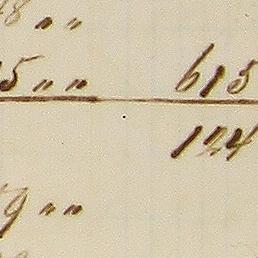 8 " "
5 " " 613
124
9 " "